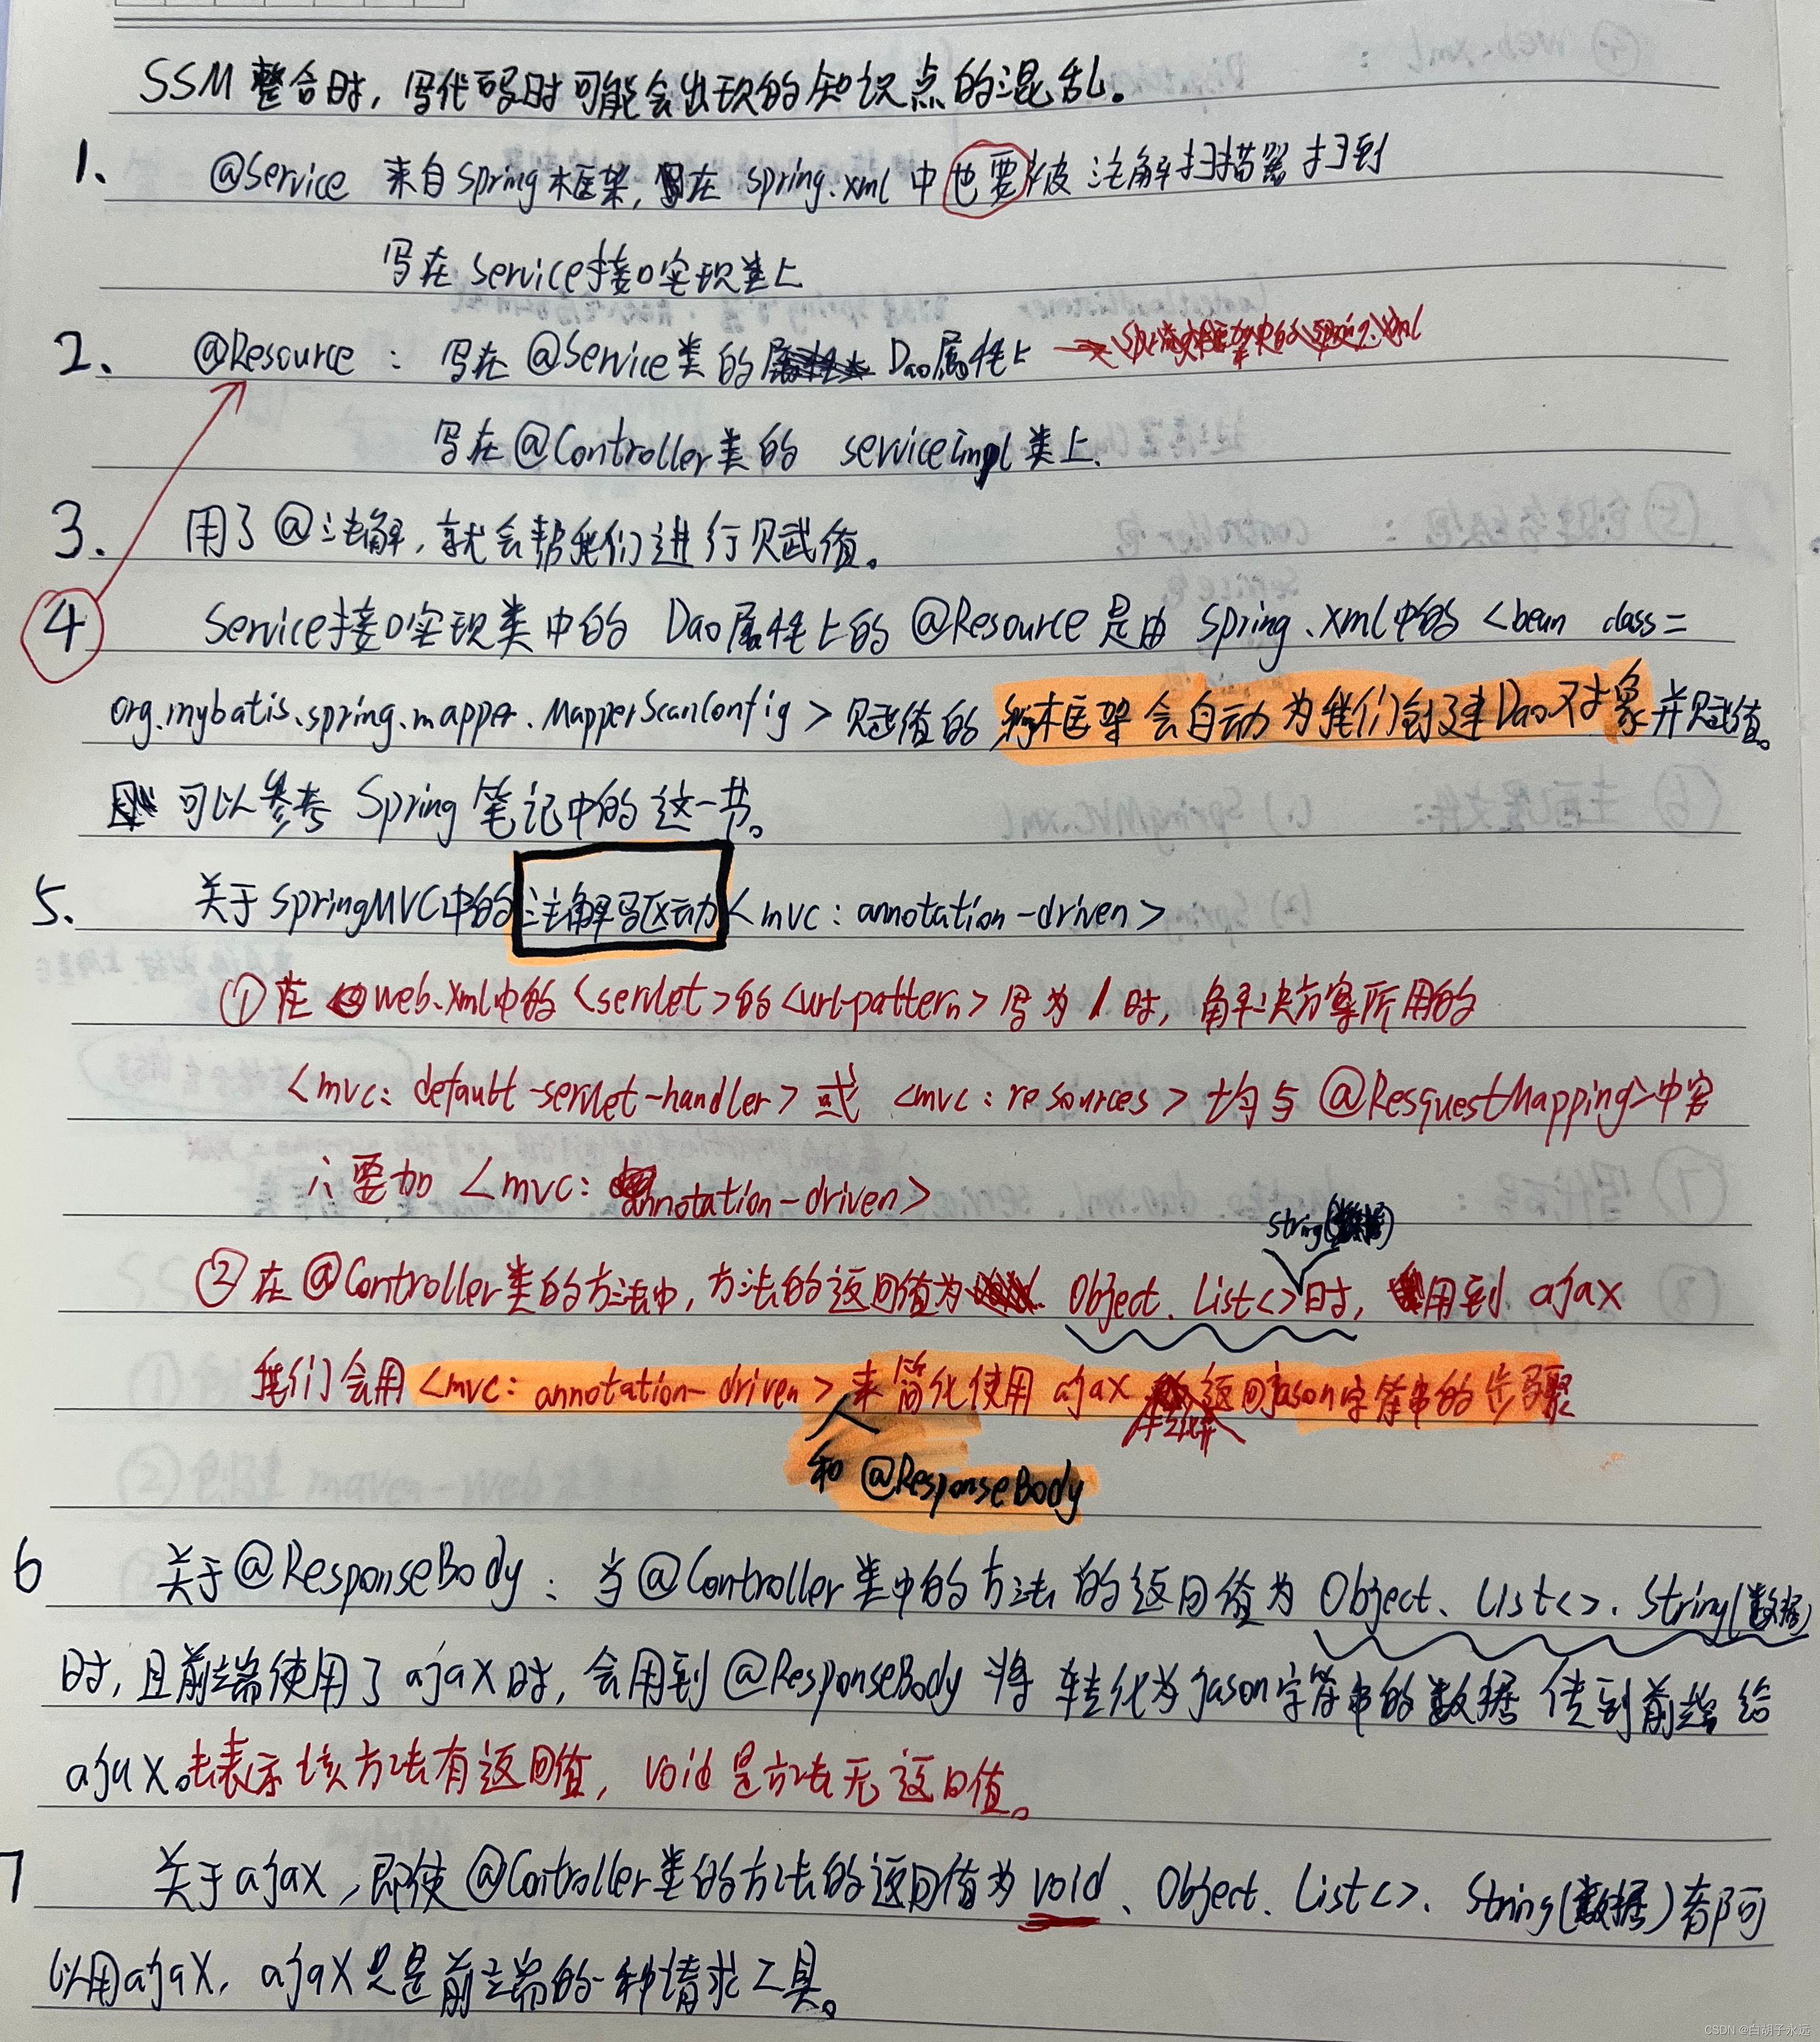 SSM 整合时，写代码时可能会出现的知识点的混乱。
1. @Service 来自Spring框架，在 spring.xml 中也要被注解扫描器扫到
写在 Service接口实现类上
2. @Resource： 写在 @Service类的 Dao属性上 →
写在@Controller类的 serviceimpl类上.
3. 用了@注解，就会帮我们进行赋值。
④ Service接口实现类中的 Dao属性上的 @Resource是由 Spring.xml中的 <bean class=
org.mybatis.spring.mapper.MapperScanConfig> 赋值的 框架会自动为我们创建Dao对象并赋值。
可以参考 Spring 笔记中的这一节。
5. 关于SpringMVC中的注解驱动<mvc：annotation-driven>
①在web.xml中的<servlet>的<url-pattern>写为 / 时，解决方案所用的
<mvc：default-servlet-handler>或 <mvc：resources> 均与 @ResquestMapping冲突
∴要加 <mvc：annotation-driven>
String
②在@Controller类的方法中，方法的返回值为 Object、List<>时，用到 ajax
我们会用<mvc：annotation-driven>来简化使用 ajax 返回jason字符串的步骤
和 @ResponseBody
6 关于@ResponseBody：当@Controller类中的方法的返回值为 Object、List<>、String(数据)
时，且前端使用了 ajax时，会用到@ResponseBody 将 转化为jason字符串的数据 传到前端 给
ajax。表示该方法有返回值，void是方法无返回值。
7 关于ajax，即使@Controller类的方法的返回值为void、Object、List<>、String(数据)都可
以用ajax，ajax只是前端的一种请求工具。
CSDN @白胡子永远